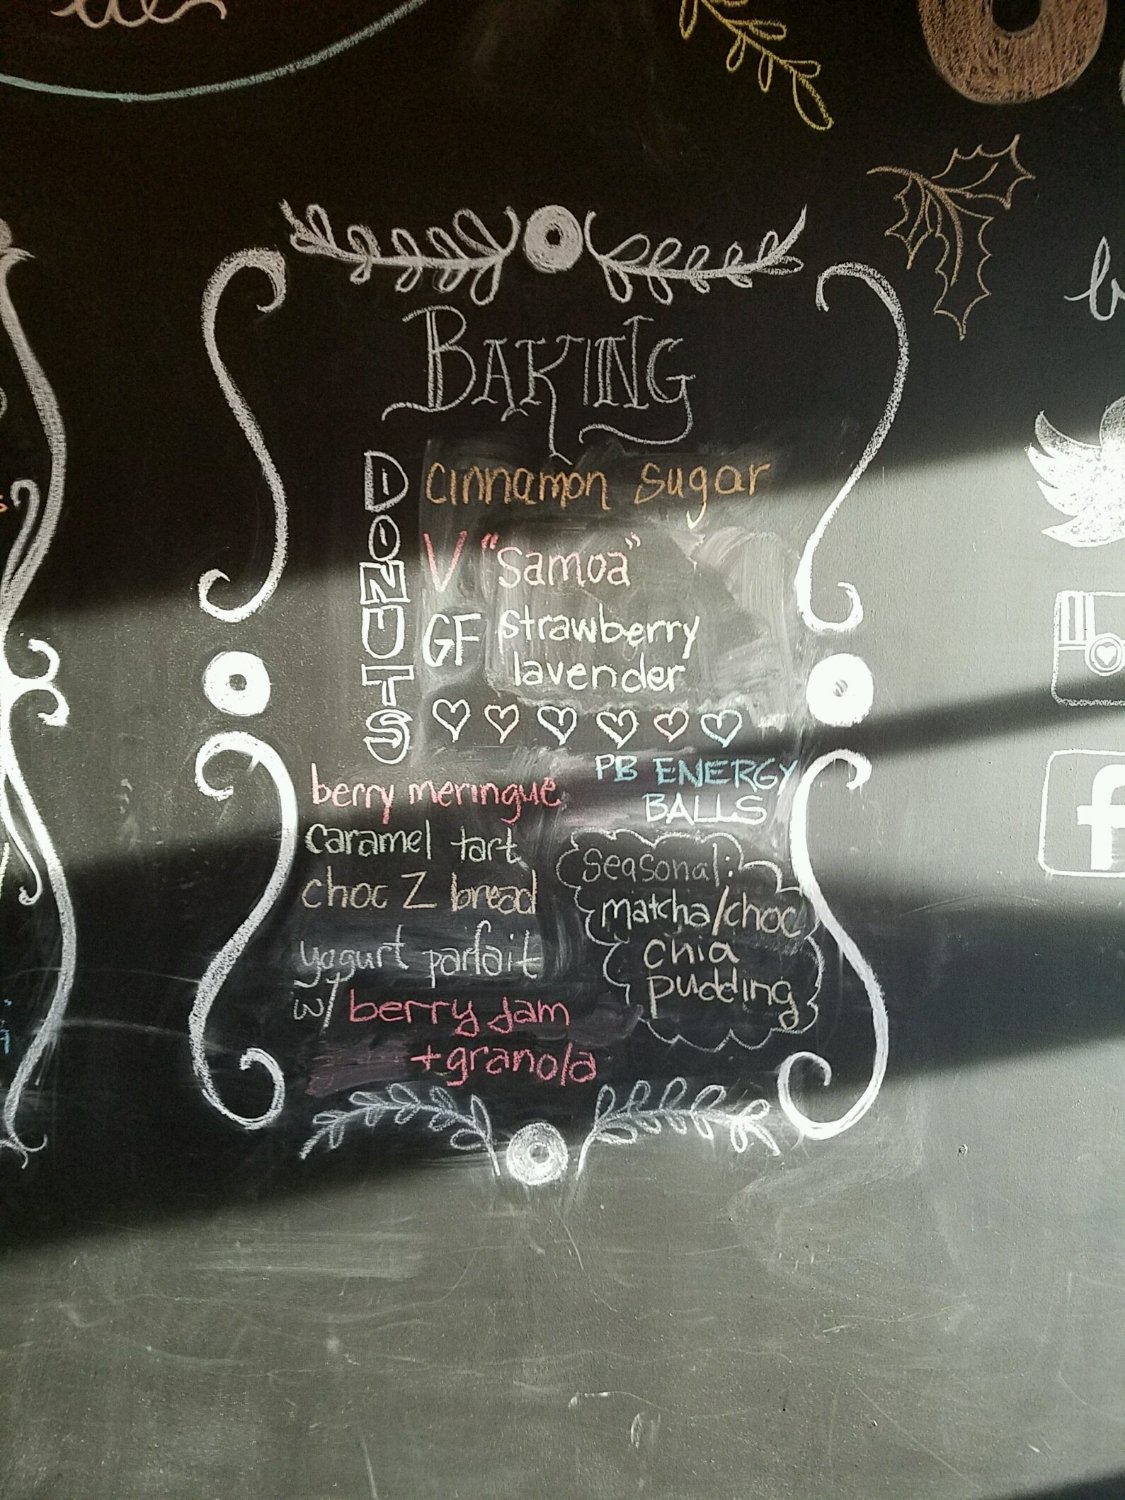 BAKING
DONUTS
cinnamon sugar
V "Samoa"
GF strawberry
lavender
berry meringue
caramel tart
choc Z bread
yogurt parfait
w/ berry jam
+granola
PB ENERGY
BALLS
seasonal:
matcha/choc
chia
pudding
f